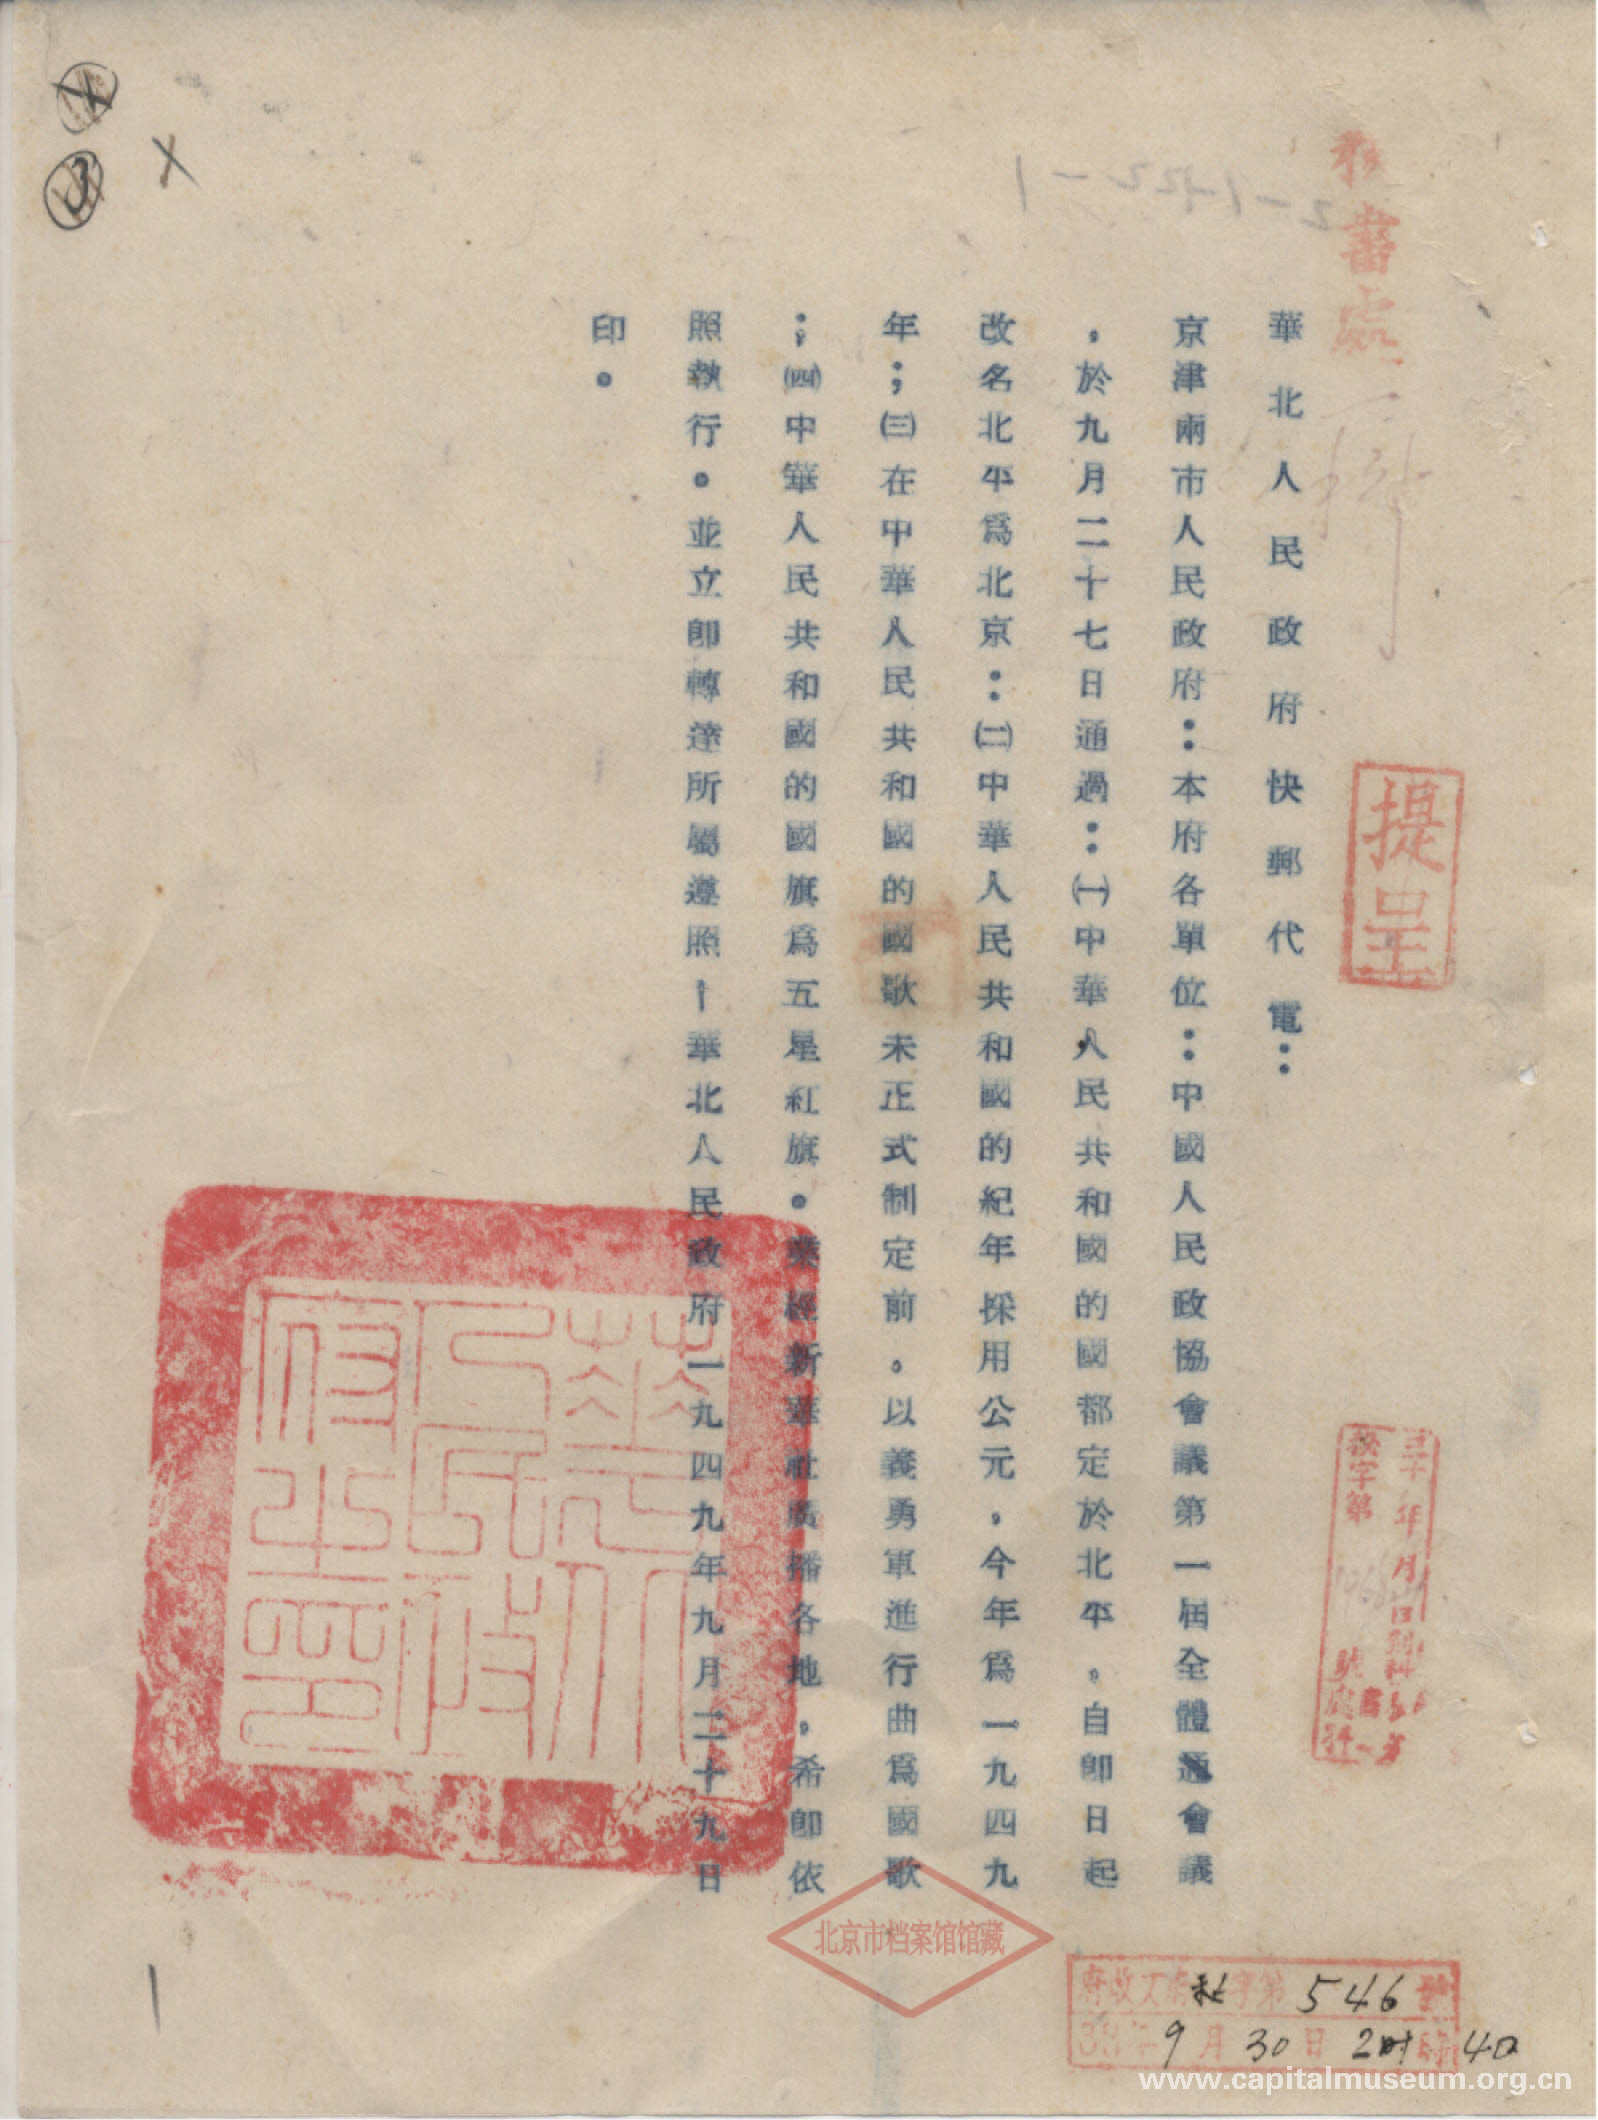 秘書處
華北人民政府快郵代電：
京津兩市人民政府：本府各單位：中國人民政協會議第一屆全體通會議
，於九月二十七日通過：㈠中華人民共和國的國都定於北平。自即日起
改名北平為北京：㈡中華人民共和國的紀年採用公元，今年為一九四九
年；㈢在中華人民共和國的國歌未正式制定前。以義勇軍進行曲為國歌
；㈣中華人民共和國的國旗為五星紅旗。業經新華社廣播各地，希即依
照執行。並立即轉達所屬遵照－華北人民政府一九四九年九月二十九日
印。
提呈
華北人民政府之印
北京市档案馆馆藏
府收文 秘字第546號
38年9月30日2时40
www.capitalmuseum.org.cn